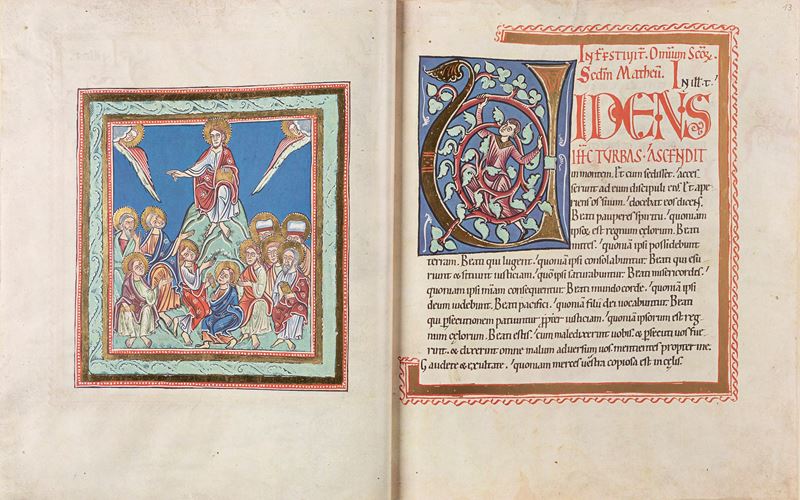 13
IN FESTIVIT. Omnium Scoꝝ.
Secdm Matheu. IN ill. t.
VIDENS
IHC TURBAS. ASCENDIT
in montem. Et cum sedisset. acces
serunt ad eum discipuli eius. Et ape
riens os suum. docebat eos dicens.
Beati pauperes spiritu. quoniam
ipsoꝝ est regnum celorum. Beati
mites. quoniam ipsi possidebunt
terram. Beati qui lugent. quoniam ipsi consolabuntur. Beati qui esu
riunt & sitiunt iusticiam. qm ipsi saturabuntur. Beati misericordes.
quoniam ipsi miam consequentur. Beati mundo corde. quoniam ipsi
deum uidebunt. Beati pacifici. quoniam filii dei uocabuntur. Beati
qui psecutionem patiuntur ppter iusticiam. quoniam ipsorum est reg
num celorum. Beati estis. cum maledixerint uobis. & psecuti uos fue
rint. & dixerint omne malum aduersum uos mentientes propter me.
Gaudete & exultate. quoniam merces uestra copiosa est in celis.